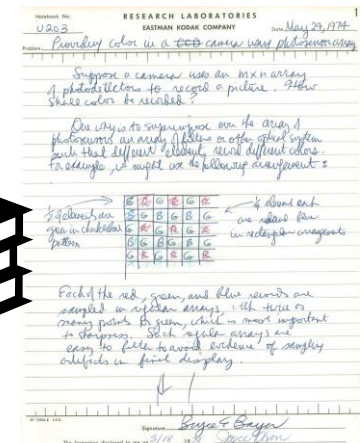 1
Notebook No. RESEARCH LABORATORIES
U203 EASTMAN KODAK COMPANY Date May 29, 1974
Problem Providing color in a CCD camera using photosensor array
Suppose a camera uses an m x n array
of photodetectors to record a picture. How
shall color be recorded?
One way is to superimpose over the array of
photosensors an array of filters or other optical system
such that different elements record different colors.
For example, we might use the following arrangement:
1/2 elements are
green in checkerboard
pattern
G R G R G R
B G B G B G
G R G R G R
B G B G B G
G R G R G R
1/4 elements each
are red and blue
in rectangular arrangements
Each of the red, green, and blue records are
sampled in regular arrays, with twice as
many points for green, which is most important
to sharpness. Such regular arrays are
easy to filter to avoid evidence of sampling
artifacts in final display.
Signature Bryce E Bayer
The foregoing disclosed to me on 5/08